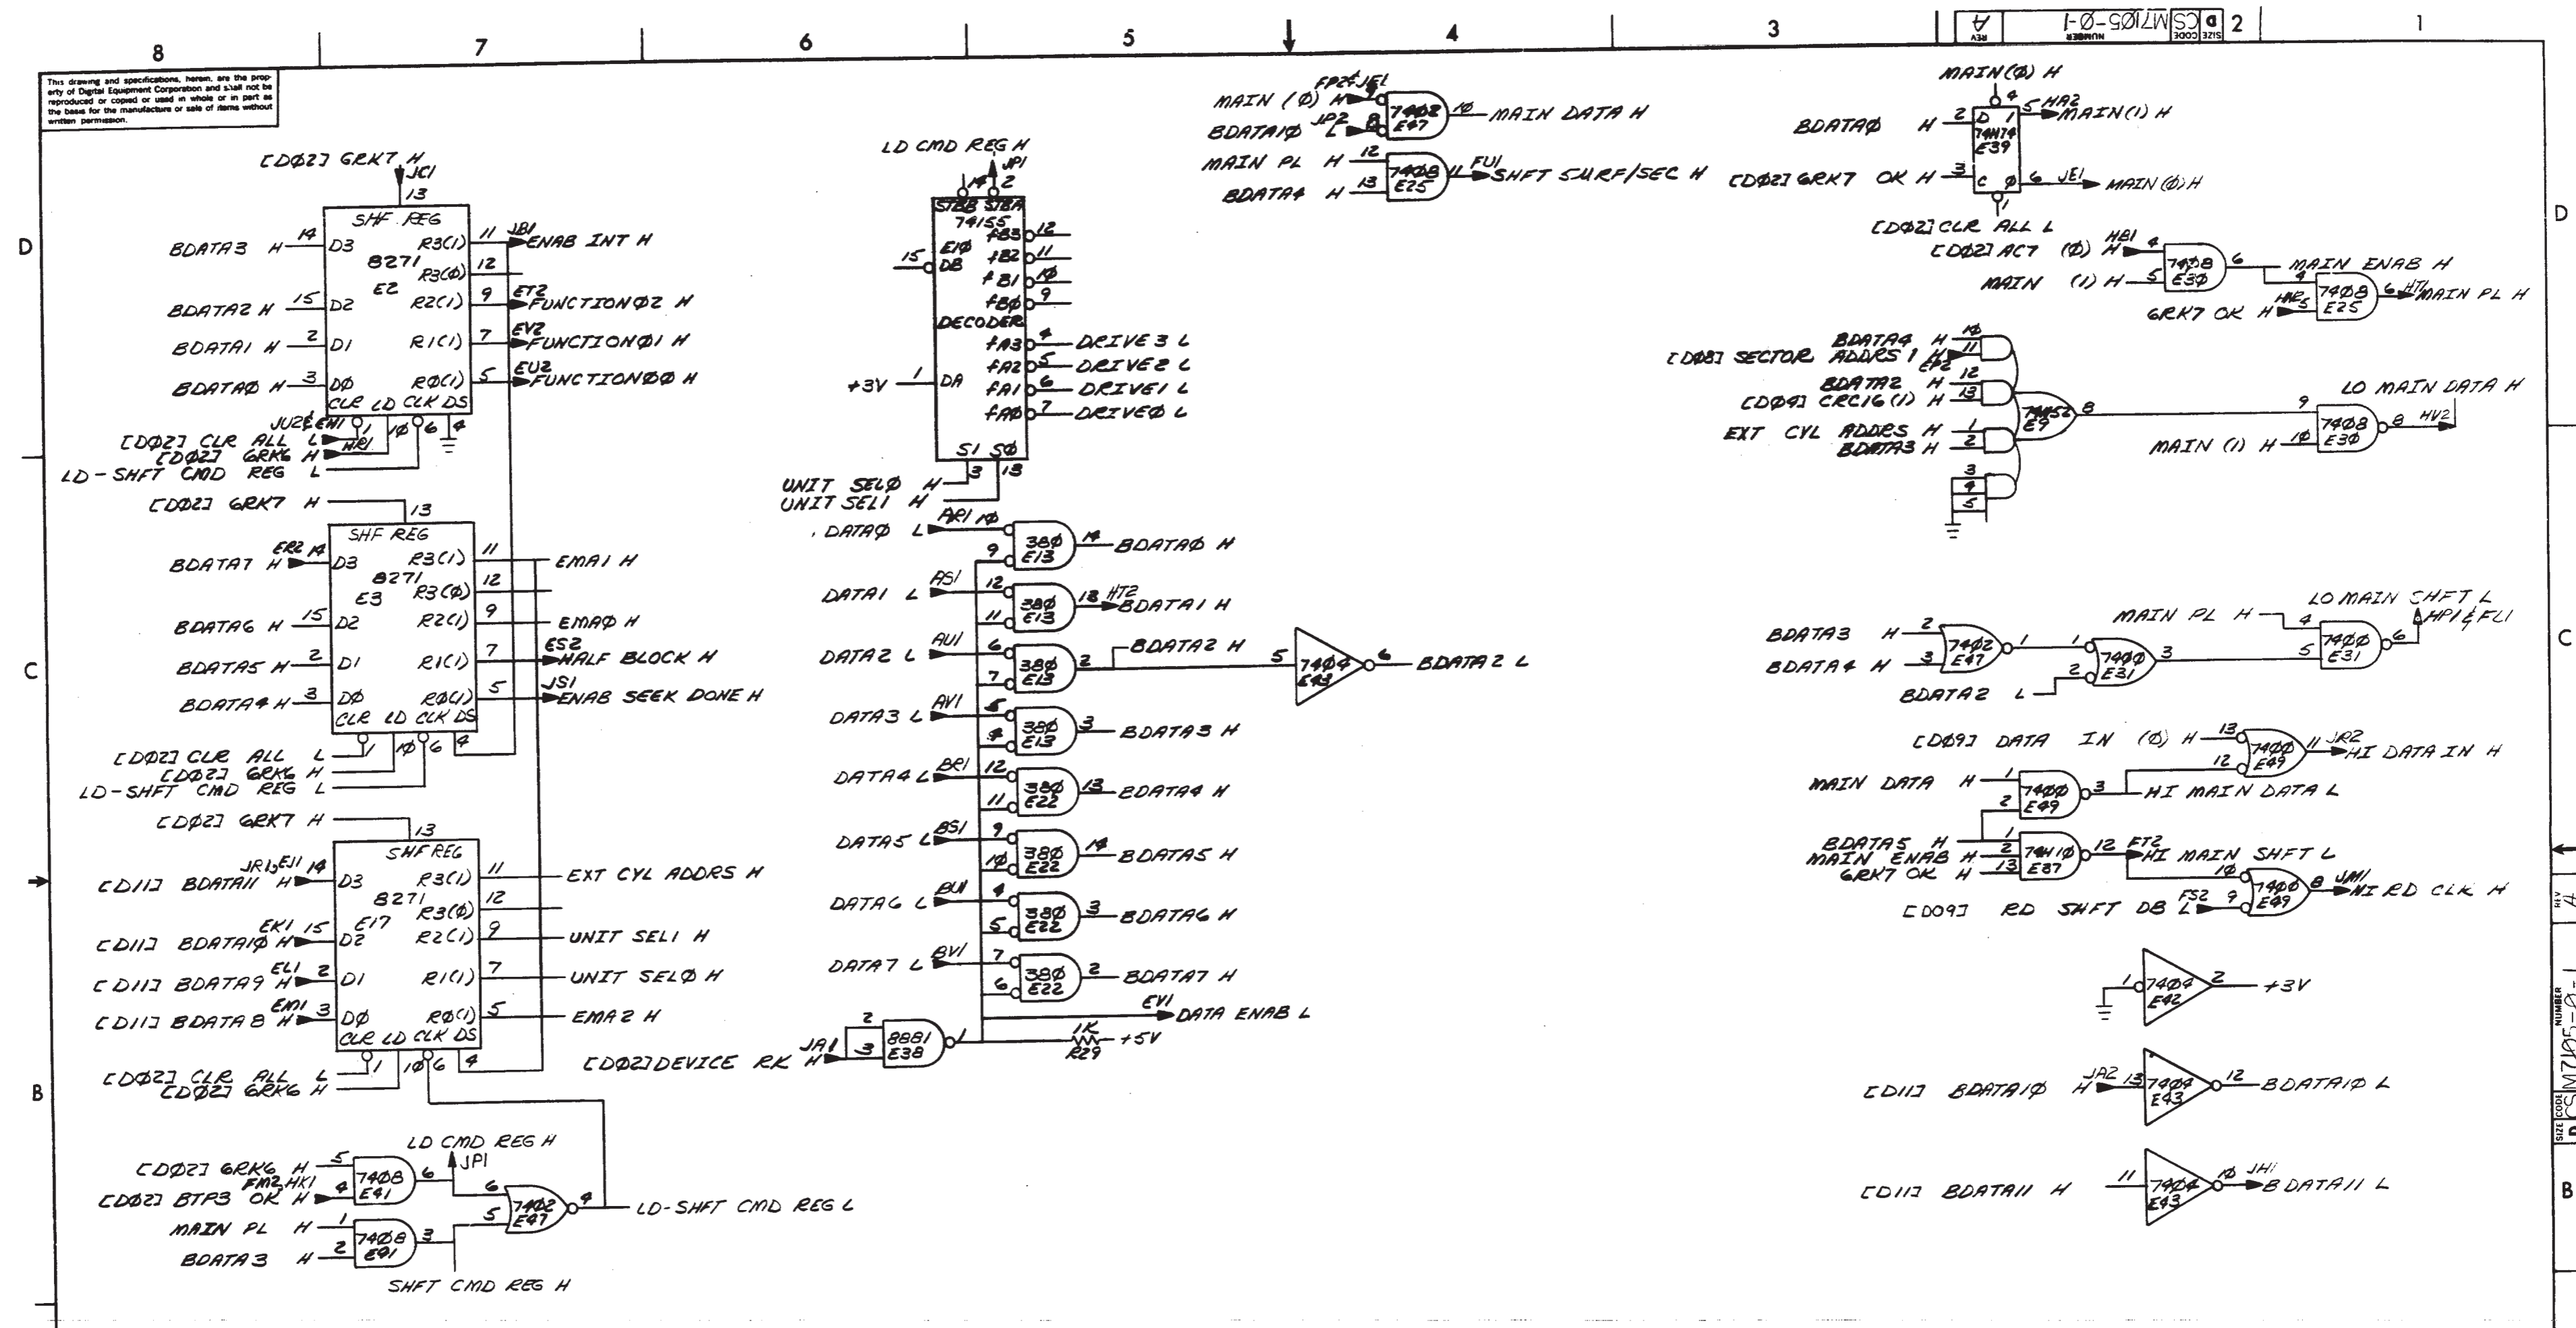 8 7 6 5 4 3 2 1
REV A NUMBER M7105-Ø-1 CODE CS SIZE D
This drawing and specifications, herein, are the prop-
erty of Digital Equipment Corporation and shall not be
reproduced or copied or used in whole or in part as
the basis for the manufacture or sale of items without
written permission.
D
[DØ2] GRK7 H
JC1
13
SHF REG
BDATA3 H 14 D3 R3(1) 11 JB1 ENAB INT H
8271
R3(Ø) 12
E2
BDATA2 H 15 D2 R2(1) 9 ET2 FUNCTIONØ2 H
BDATA1 H 2 D1 R1(1) 7 EV2 FUNCTIONØ1 H
BDATAØ H 3 DØ RØ(1) 5 EU2 FUNCTIONØØ H
CLR LD CLK DS
JU2& EH1 1 1Ø 6 4
[DØ2] CLR ALL L
HR1
[DØ2] GRK6 H
LD-SHFT CMD REG L
[DØ2] GRK7 H
13
SHF REG
BDATA7 H ER2 14 D3 R3(1) 11 EMA1 H
8271
E3 R3(Ø) 12
BDATA6 H 15 D2 R2(1) 9 EMAØ H
BDATA5 H 2 D1 R1(1) 7 ES2 HALF BLOCK H
BDATA4 H 3 DØ RØ(1) 5 JS1 ENAB SEEK DONE H
CLR LD CLK DS
1 1Ø 6 4
[DØ2] CLR ALL L
[DØ2] GRK6 H
LD-SHFT CMD REG L
[DØ2] GRK7 H
13
SHF REG
[D11] BDATA11 H JR1,EJ1 14 D3 R3(1) 11 EXT CYL ADDRS H
8271
R3(Ø) 12
E17
[D11] BDATA1Ø H EK1 15 D2 R2(1) 9 UNIT SEL1 H
[D11] BDATA9 H EL1 2 D1 R1(1) 7 UNIT SELØ H
[D11] BDATA8 H EM1 3 DØ RØ(1) 5 EMA2 H
CLR LD CLK DS
1 1Ø 6 4
[DØ2] CLR ALL L
[DØ2] GRK6 H
LD CMD REG H
JP1
[DØ2] GRK6 H 5 7408 E41 6
[DØ2] BTP3 OK H FM2,HK1 4
6 7402 E47 4 LD-SHFT CMD REG L
5
MAIN PL H 1 7408 E41 3
BDATA3 H 2
SHFT CMD REG H
LD CMD REG H
JP1
14 2
STBB STBA
74155
E1Ø
fB3 12
15 DB fB2 11
fB1 1Ø
fBØ 9
DECODER
fA3 4 DRIVE3 L
fA2 5 DRIVE2 L
+3V 1 DA fA1 6 DRIVE1 L
fAØ 7 DRIVEØ L
S1 SØ
3 13
UNIT SELØ H
UNIT SEL1 H
DATAØ L AR1 1Ø 38Ø E13 14 BDATAØ H
9
DATA1 L AS1 12 38Ø E13 13 HT2 BDATA1 H
11
DATA2 L AU1 6 38Ø E13 2 BDATA2 H
7
5 7404 E43 6 BDATA2 L
DATA3 L AV1 5 38Ø E13 3 BDATA3 H
4
DATA4 L BR1 12 38Ø E22 13 BDATA4 H
11
DATA5 L BS1 9 38Ø E22 14 BDATA5 H
1Ø
DATA6 L BU1 4 38Ø E22 3 BDATA6 H
5
DATA7 L BV1 7 38Ø E22 2 BDATA7 H
6
EV1 DATA ENAB L
[DØ2] DEVICE RK H JA1 2 3 8881 E38 1
1K R29 +5V
MAIN (Ø) H FP2&JE1 9 7402 E47 1Ø MAIN DATA H
BDATA1Ø L JP2 8
MAIN PL H 12 7408 E25 11 FU1 SHFT SURF/SEC H
BDATA4 H 13
MAIN(Ø) H
4
BDATAØ H 2 D 1 5 HA2 MAIN(1) H
74H74
E39
[DØ2] GRK7 OK H 3 C Ø 6 JE1 MAIN(Ø)H
1
[DØ2] CLR ALL L
[DØ2] AC7 (Ø) H HB1 4 7408 E3Ø 6 MAIN ENAB H
MAIN (1) H 5
4 7408 E25 6 HT1 MAIN PL H
GRK7 OK H 5
BDATA4 H 1Ø
[DØ8] SECTOR ADDRS 1 H 11
EP2
BDATA2 H 12
[DØ4] CRC16(1) H 13
74H52 E9 8
EXT CYL ADDRS H 1
BDATA3 H 2
3
4
5
LO MAIN DATA H
9 7408 E3Ø 8 HV2
MAIN (1) H 1Ø
LO MAIN SHFT L
HP1&FL1
MAIN PL H 4 7400 E31 6
5
BDATA3 H 2 7402 E47 1
BDATA4 H 3
1 7400 E31 3
BDATA2 L 2
[DØ9] DATA IN (Ø) H 13 7400 E49 11 JR2 HI DATA IN H
12
MAIN DATA H 1 7400 E49 3 HI MAIN DATA L
2
BDATA5 H 1
MAIN ENAB H 2 74H10 E37 12 FT2 HI MAIN SHFT L
GRK7 OK H 13
1Ø 7400 E49 8 JM1 HI RD CLK H
[DO9] RD SHFT DB L FS2 9
1 7404 E42 2 +3V
[D11] BDATA1Ø H JA2 13 7404 E43 12 BDATA1Ø L
[D11] BDATA11 H 11 7404 E43 1Ø JH1 BDATA11 L
D
C
C
B
B
REV A
NUMBER M7105-Ø-1
CODE CS
SIZE D